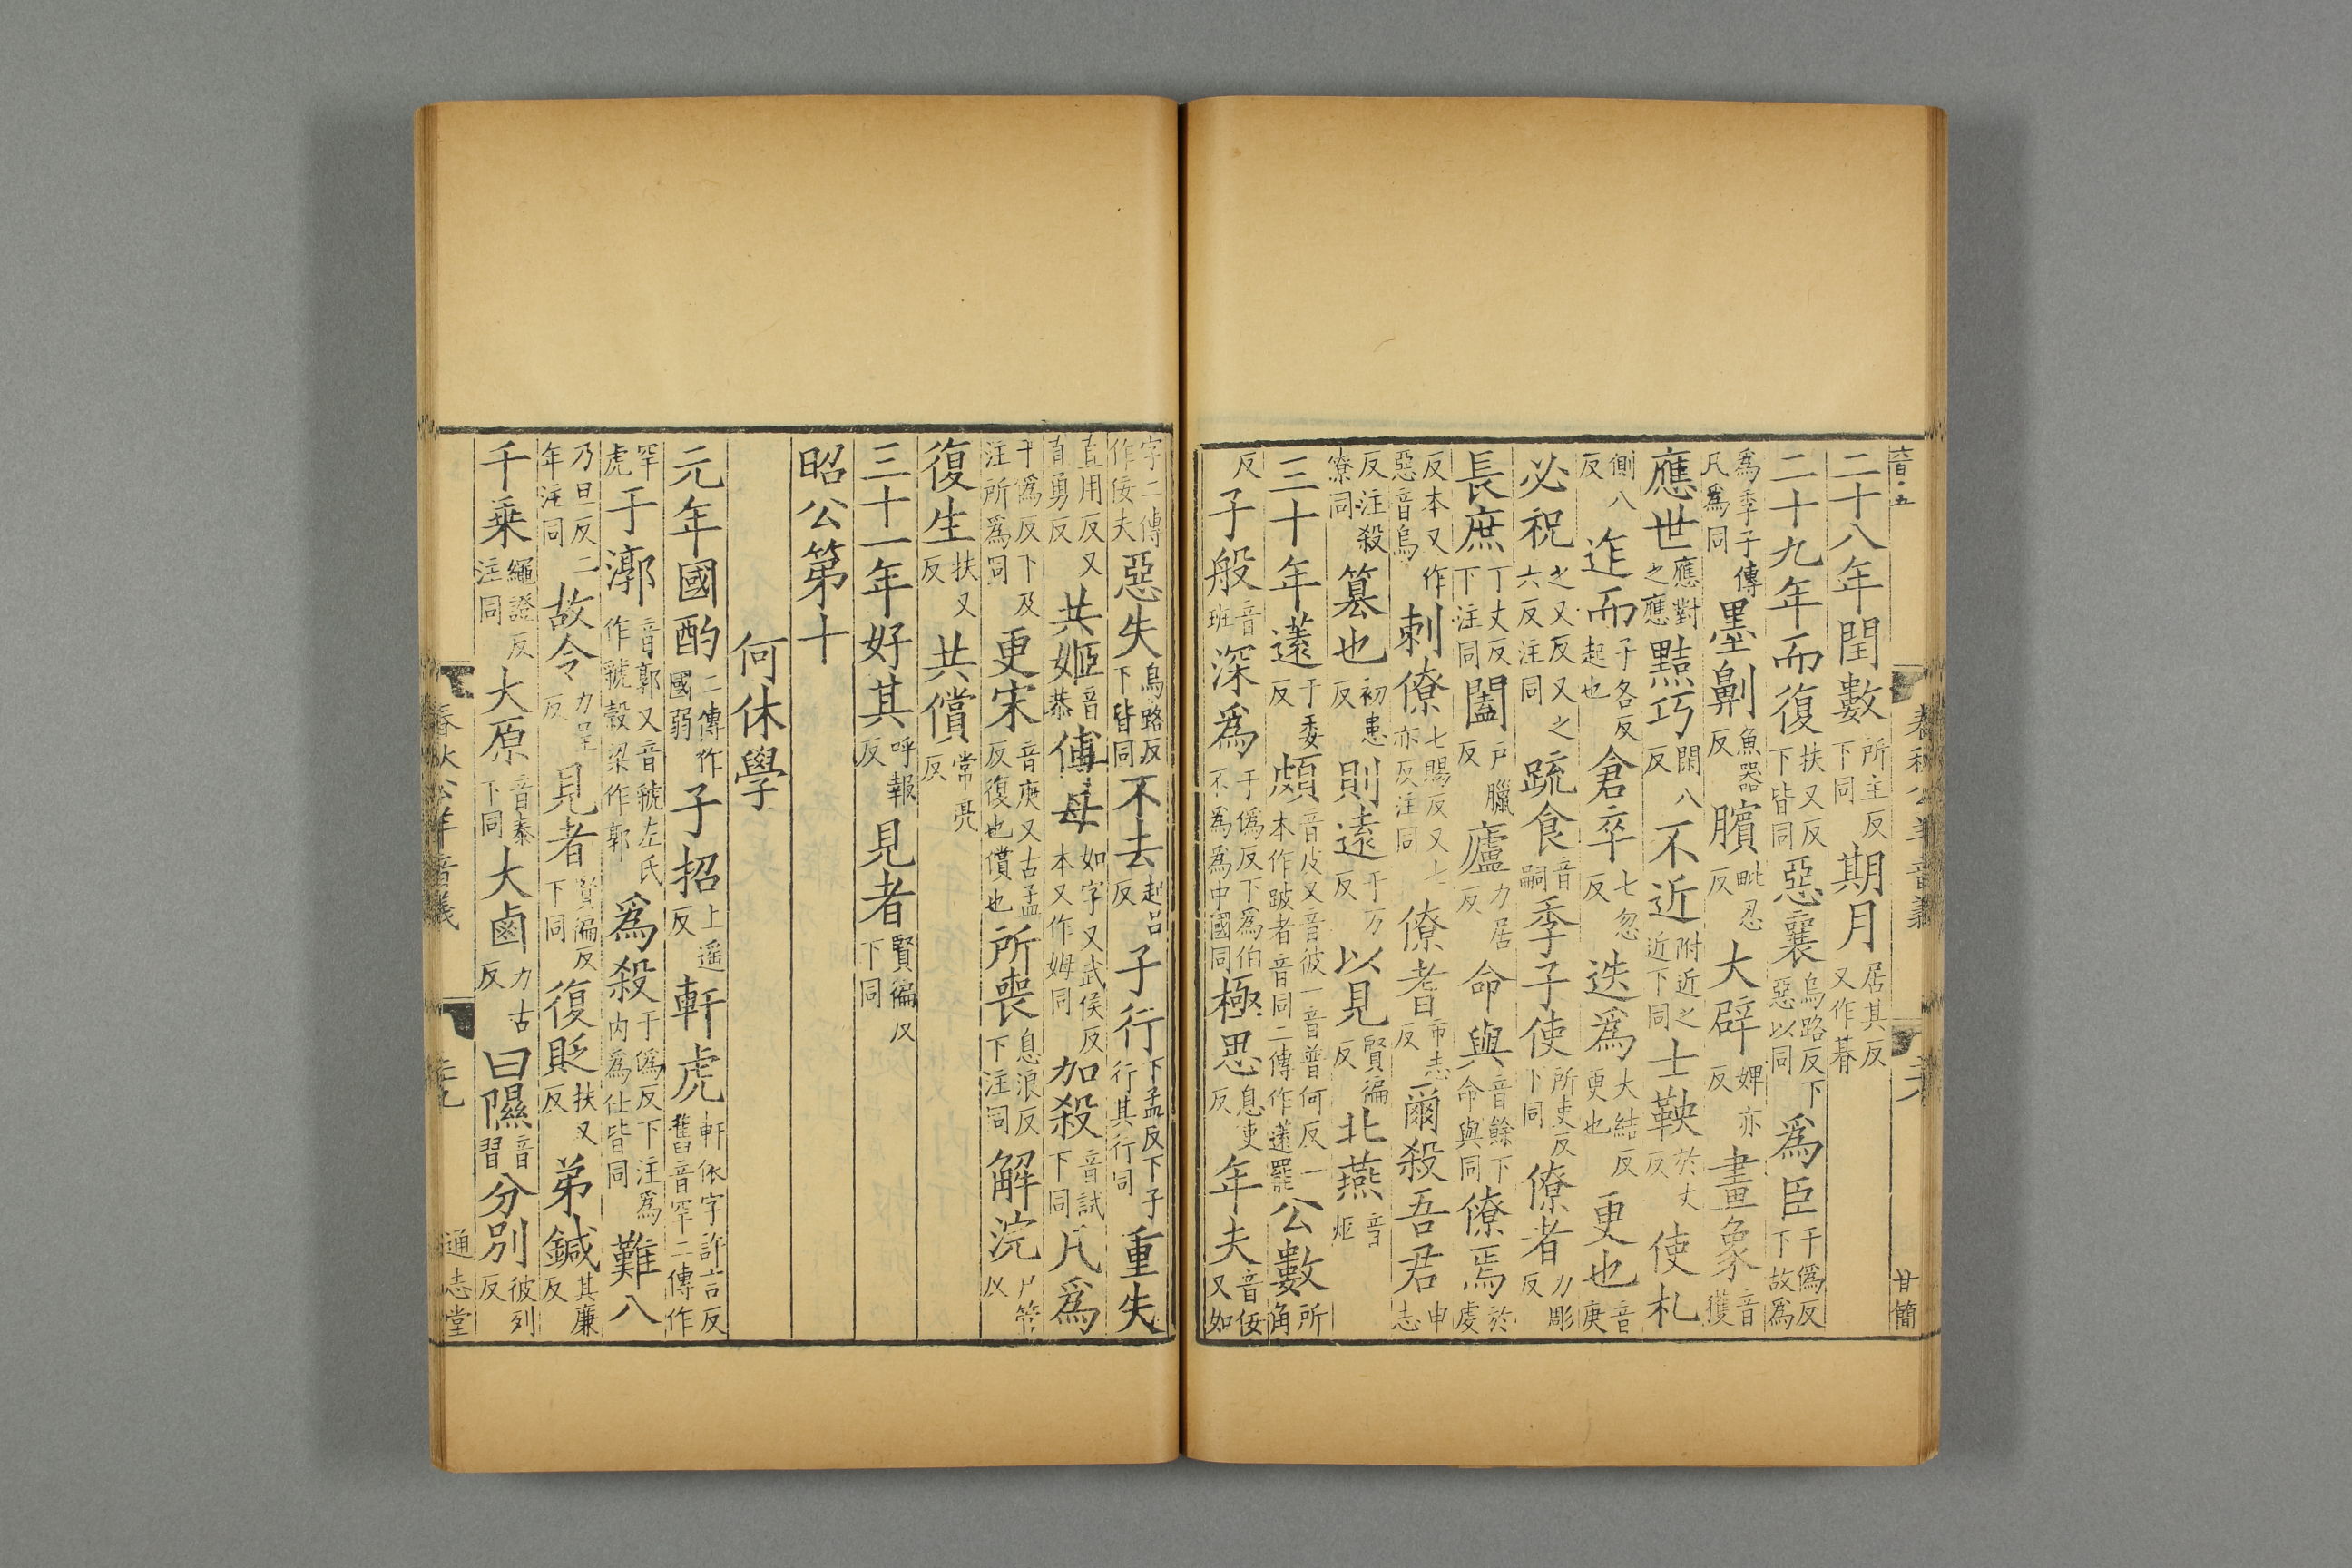 二十八年閏數所主反下同期月居其反又作朞
二十九年而復扶又反下皆同惡襄烏路反下惡以同爲臣于僞反下故爲
爲季子傳凡爲同墨劓魚器反臏毗忍反大辟婢亦反畫象音獲
應世應對之應黠巧閑八反不近附近之近下同士鞅於丈反使札
側八反迮而子各反起也倉卒七忽反迭爲大結反更也更也音庚
必祝之又反又之六反注同疏食音嗣季子使所吏反下同僚者力彫反
長庶丁丈反下注同闔戶臘反廬力居反命與音餘下命與同僚焉於虔
反本又作惡音烏刺僚七賜反又七亦反注同僚耆市志反爾殺吾君申志
反注殺僚同篡也初患反則遠于万反以見賢徧反北燕音煙
三十年薳于委反頗音皮又音彼一音普何反一本作跛者音同二傳作薳罷公數所角
反子般音班深爲于僞反下爲伯不爲爲中國同極思息吏反年夫音佞又如
字二傳作佞夫惡失烏路反下皆同不去起呂反子行下孟反下子行其行同重失
直用反又直勇反共姬音恭傅母如字又武侯反本又作姆同加殺音試下同凡爲
于僞反下及注所爲同更宋音庚又古孟反復也償也所喪息浪反下注同解浣戶管以
復生扶又反共償常亮反
三十一年好其呼報反見者賢徧反下同
昭公第十
何休學
元年國酌二傳作國弱子招上遥反軒虎軒依字許言反舊音罕二傳作
罕虎于漷音郭又音虢左氏作虢穀梁作郭爲殺于僞反下注爲内爲仕皆同難八
乃旦反二年注同故令力呈反見者賢徧反下同復貶扶又反弟鍼其廉反
千乗繩證反注同大原音泰下同大鹵力古反曰隰音習分別彼列反
春秋公羊音義
通志堂
春秋公羊音義
甘簡